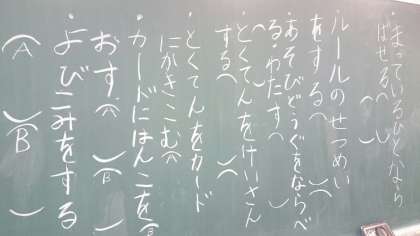 ・まっているひとをなら
ばせる（　）（　）
・ルールのせつめい
をする（　）（　）
・あそびどうぐをならべ
る・わたす（　）（　）
・とくてんをけいさん
する（　）（　）
・とくてんをカード
にかきこむ（
・カードにはんこを
おす（A　）（B　）
・よびこみをする
（A　）（B　）